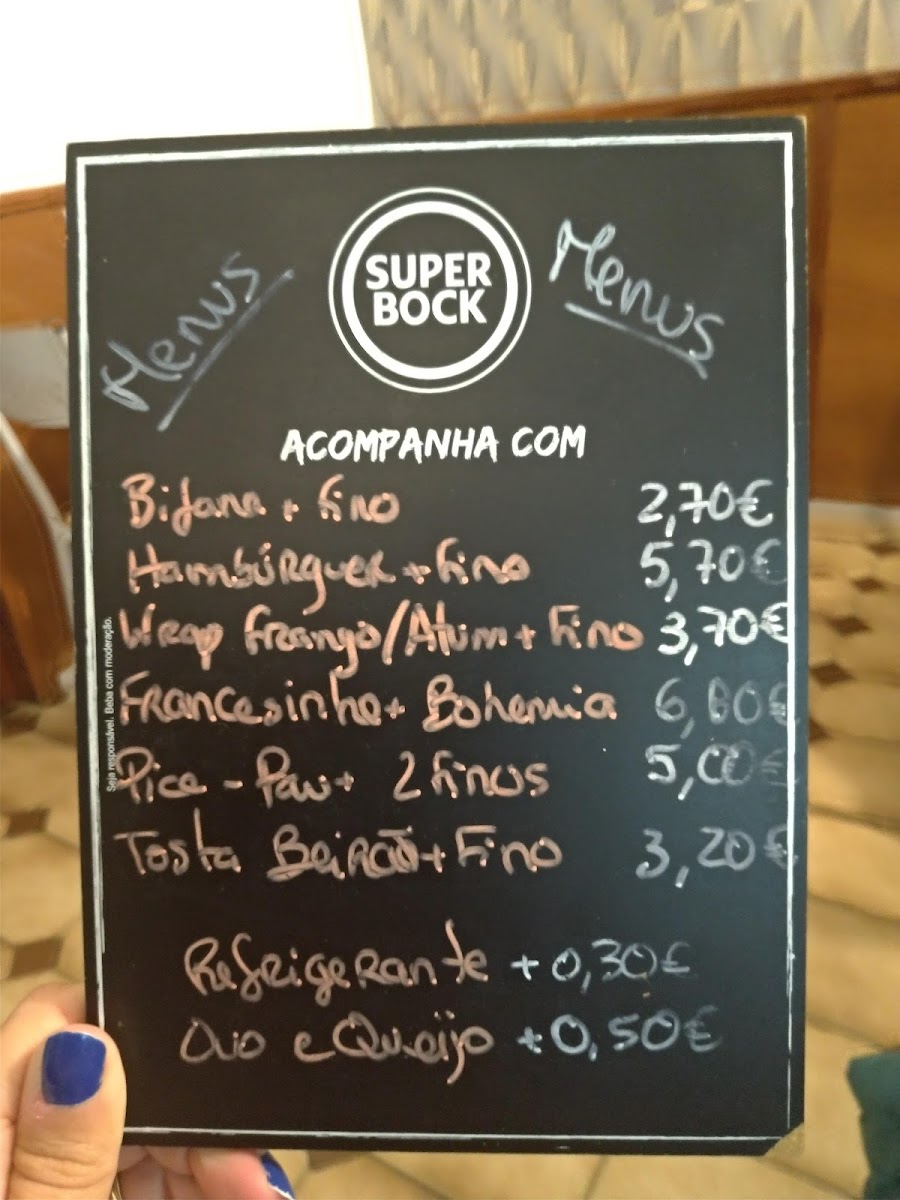 SUPER
BOCK
Menus
Menus
ACOMPANHA COM
Bifana + Fino 2,70€
Hambúrguer + Fino 5,70€
Wrap Frango/Atum + Fino 3,70€
Francesinha + Bohemia 6,80€
Pica - Pau + 2 Finos 5,00€
Tosta Beirão + Fino 3,20€
Refrigerante + 0,30€
Ovo e Queijo + 0,50€
Seja responsável. Beba com moderação.